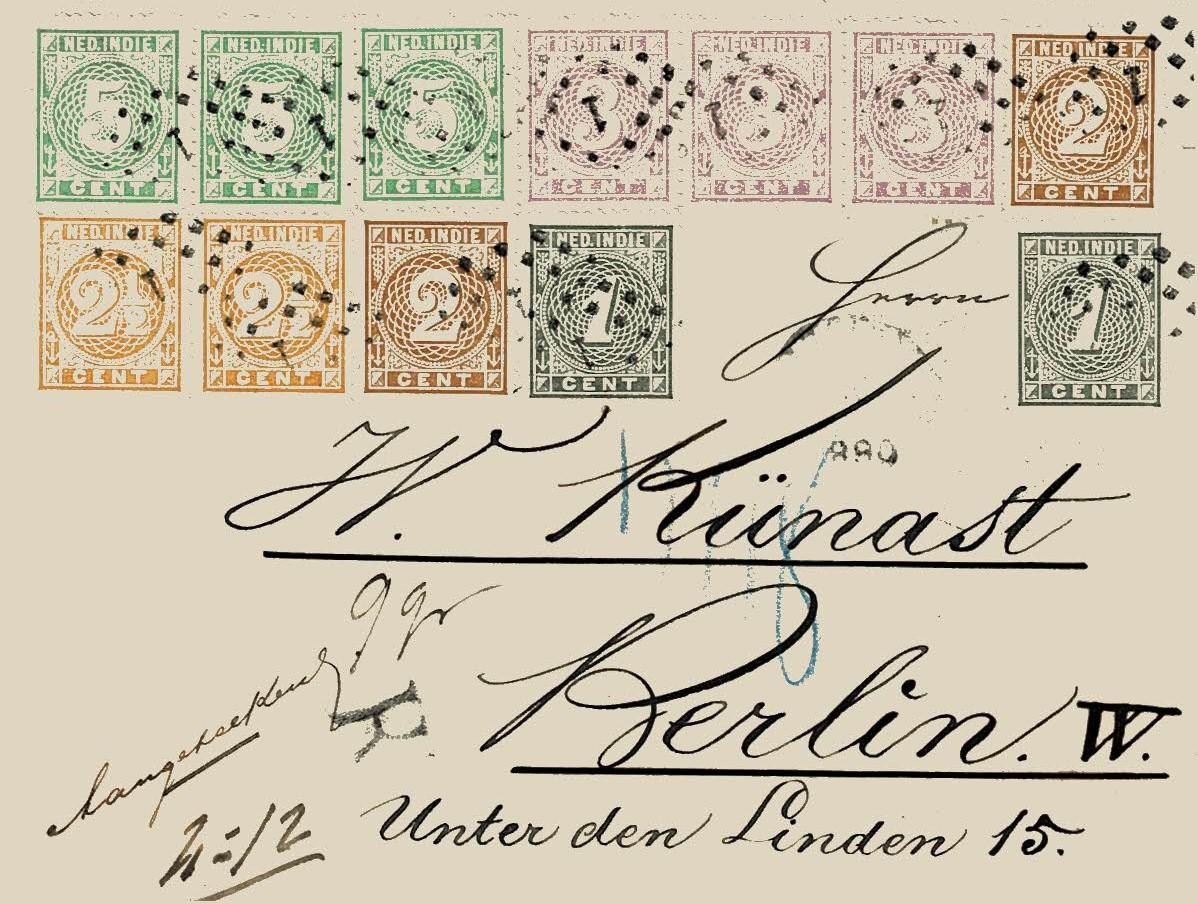 NED.INDIE NED.INDIE NED.INDIE NED.INDIE NED.INDIE NED.INDIE NED.INDIE
5 5 5 3 3 3 2
CENT CENT CENT CENT CENT CENT CENT
NED.INDIE NED.INDIE NED.INDIE NED.INDIE NED.INDIE
2½ 2½ 2 1 1
CENT CENT CENT CENT CENT
Herrn
W. Künast
Berlin. W.
Unter den Linden 15.
9 gr
R
Aangetekend